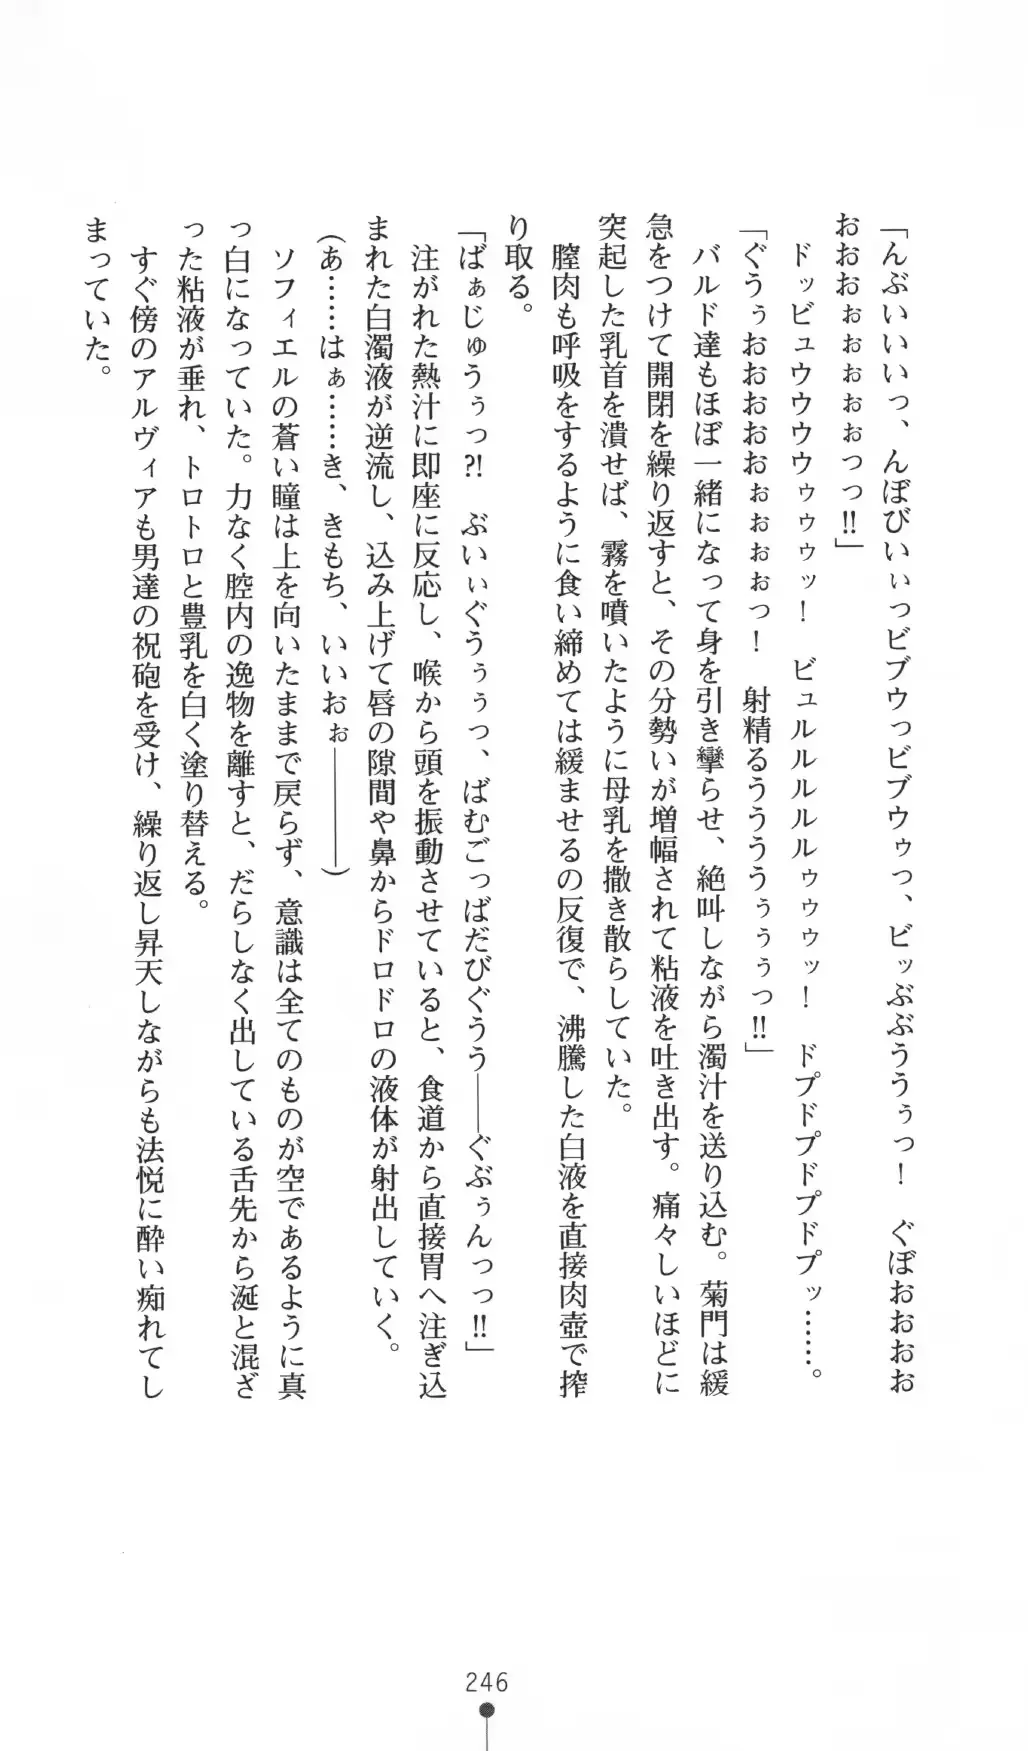 「んぶいいいっ、んぼびいぃっビブウっビブウゥっ、ビッぶぶううぅっ！　ぐぼおおおお
おおおぉぉぉぉっっ!!」
ドッビュウウウウゥゥゥッ！　ビュルルルルルゥゥゥッ！　ドプドプドプドプッ……。
「ぐうぅおおおおおぉぉぉぉっ！　射精るうううううぅぅぅっ!!」
バルド達もほぼ一緒になって身を引き攣らせ、絶叫しながら濁汁を送り込む。菊門は緩
急をつけて開閉を繰り返すと、その分勢いが増幅されて粘液を吐き出す。痛々しいほどに
突起した乳首を潰せば、霧を噴いたように母乳を撒き散らしていた。
膣肉も呼吸をするように食い締めては緩ませるの反復で、沸騰した白液を直接肉壺で搾
り取る。
「ばぁじゅうぅっ?!　ぶいぃぐうぅぅっ、ばむごっばだびぐうう――ぐぶぅんっっ!!」
注がれた熱汁に即座に反応し、喉から頭を振動させていると、食道から直接胃へ注ぎ込
まれた白濁液が逆流し、込み上げて唇の隙間や鼻からドロドロの液体が射出していく。
（あ……はぁ……き、きもち、いいおぉ――――）
ソフィエルの蒼い瞳は上を向いたままで戻らず、意識は全てのものが空であるように真
っ白になっていた。力なく腔内の逸物を離すと、だらしなく出している舌先から涎と混ざ
った粘液が垂れ、トロトロと豊乳を白く塗り替える。
すぐ傍のアルヴィアも男達の祝砲を受け、繰り返し昇天しながらも法悦に酔い痴れてし
まっていた。
246